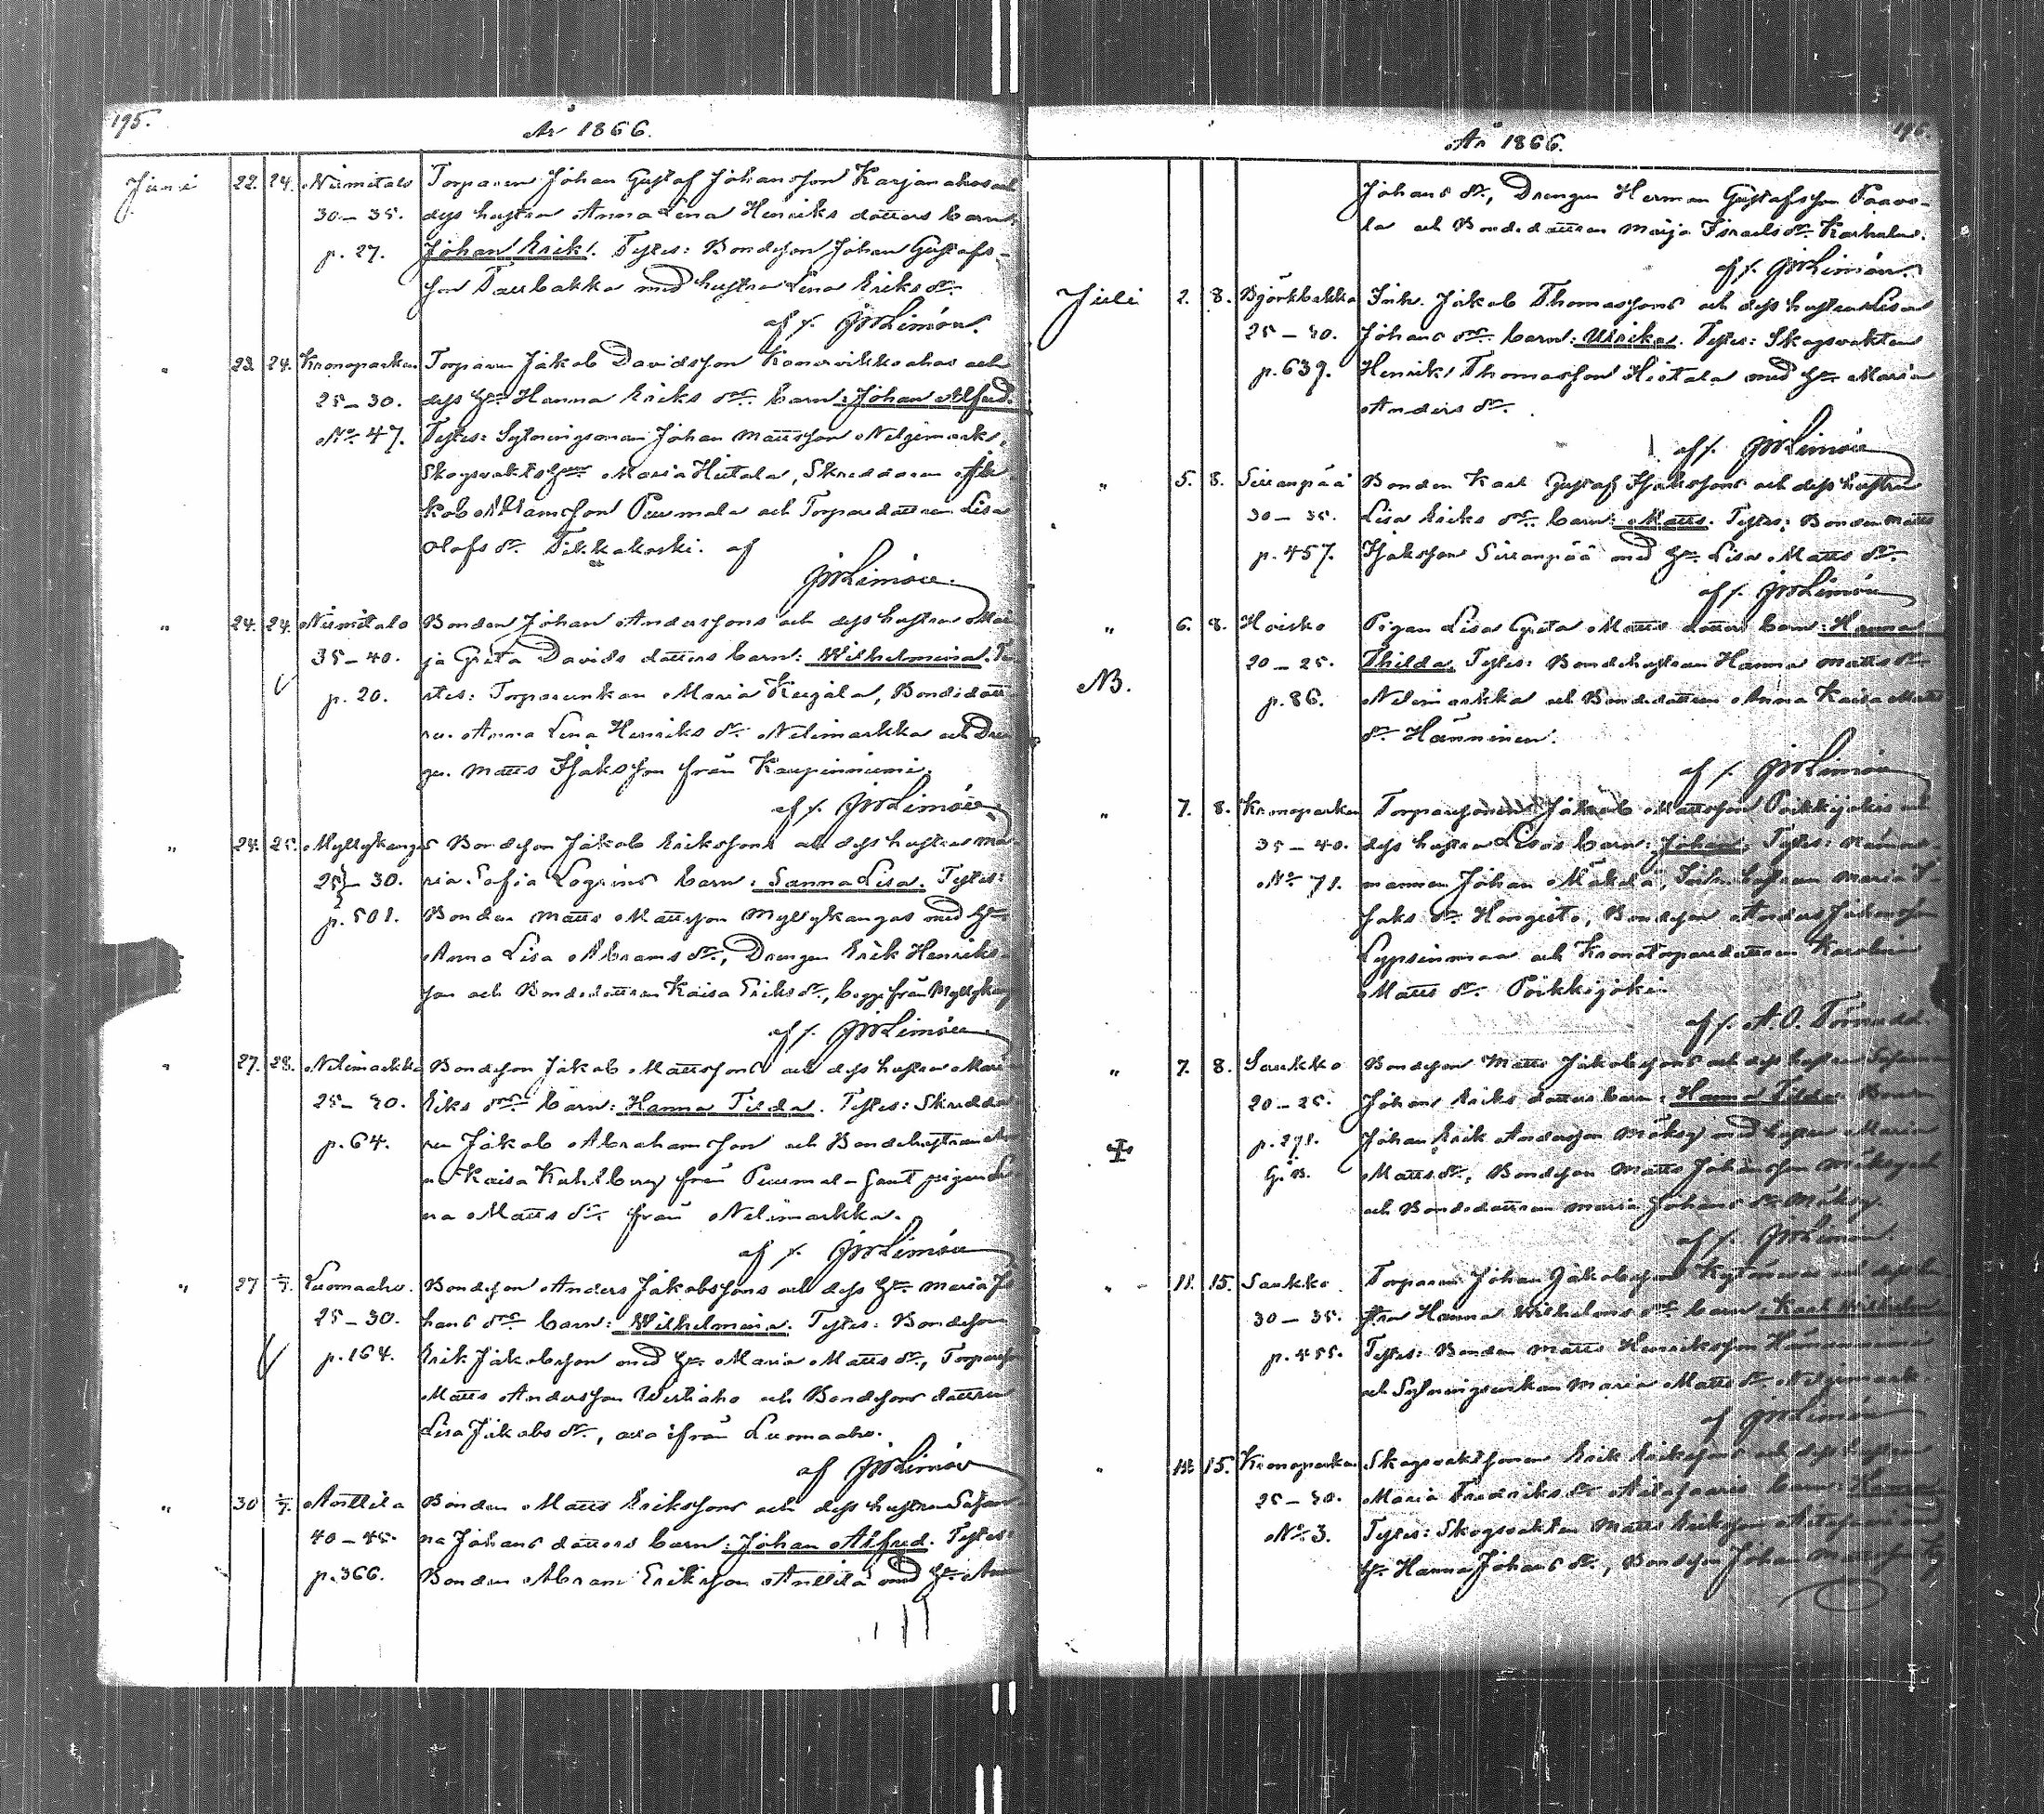 195.
År 1866.
Juni 22. 24. Niemitalo Torparen Johan Gustaf Johansson Karjanahos och
30–35. dess hustru Anna Lena Henriks dotters barn:
p. 27. Johan Erik. Testes: Bondeson Johan Gustafs-
son Pauhakka med hustru Lena Eriks dr.
af f. JWLimón.
" 23. 24. Kronoparken Torparen Jakob Davidsson Konivikkoahos och
25–30. dess hu Hanna Eriks drs barn: Johan Alfred.
No 47. Testes: Sytningsman Johan Mattsson Nelgimarkk,
Skogsvakts hun Maria Hietala, Skreddaren Ja
kob Abramsson Puumala och Torpardottren Lisa
Olofs dr. Pitkäkoski. af
JWLimón.
" 24. 24. Niemitalo Bonden Johan Anderssons och dess hustru Ma
35–40. ja Greta Davids dotters barn: Wilhelmina. Te
p. 20. stes: Torparenkan Maria Kujala, Bondedott
ren Anna Lena Henriks dr. Nelimarkka och Dren
gen Matts Isaksson från Kaupinniemi.
af f. JWLimón.
" 24. 25. Myllykangas Bondeson Jakob Erikssons och dess hustru Ma
25–30. ria Sofia Logréns barn: Sanna Lisa. Testes:
p. 501. Bonden Matts Mattsson Myllykangas med hu
Anna Lisa Abrams dr., Drengen Erik Henriks-
son och Bondedottren Kaisa Eriks dr., begge från Myllykang
af f. JWLimón
" 27. 28. Nelimarkka Bondeson Jakob Mattssons och dess hustru Mari
25–30. Eriks drs barn: Hanna Tilda. Testes: Skredda
p. 64. ren Jakob Abrahamsson och Bondehustrun An
na Kaisa Kahlberg från Puumala samt pigan Le
na Matts dr. från Nelimarkka.
af f. JWLimón
" 27 1/7. Luomaaho. Bondeson Anders Jakobssons och dess hu Maria Jo
25–30. hans drs barn: Wilhelmina. Testes: Bondeson
p. 164. Erik Jakobsson med hu Maria Matts dr., Torpareson
Matts Andersson Wertiaho och Bondesons dottren
Lisa Jakobs dr., alla ifrån Luomaaho.
af JWLimón
" 30 1/7. Anttila Bonden Matts Erikssons och dess hustru Susan
40–45. na Johans dotters barn: Johan Alfred. Testes:
p. 366. Bonden Abram Eriksson Anttila med hu Ann
196.
År 1866.
Johans dr., Drengen Herman Gustafsson Paavo-
la och Bondedottren Maija Israels dr. Karhalu.
af f. JWLimón.
Juli 2. 8. Björkbakka Inh. Jakob Thomassons och dess hustru Lisa
25–30. Johans drs barn: Ulrika. Testes: Skogsvakten
p. 639. Henrik Thomasson Hietala med hu Maria
Anders dr.
af f. JWLimón
" 5. 8. Siiranpää Bonden Karl Gustaf Isakssons och dess hustru
30–35. Lisa Eriks drs barn: Matts. Testes: Bonden Matts
p. 457. Isaksson Siiranpää med hu Lisa Matts dr.
af f. JWLimón
" 6. 8. Hoisko Pigan Lisa Greta Matts dotters barn: Hanna
20–25. Thilda. Testes: Bondehustrun Hanna Matts dr.
NB. p. 86. Nelimarkka och Bondedottren Anna Kaisa Matts
dr. Hänninen.
af f. JWLimón
" 7. 8. Kronoparken Torparesonen Jakob Mattsson Poikkijokis och
35–40. dess hustru Lisas barn: Johan. Testes: Nämnde-
No 71. mannen Johan Mäkelä, Inh. hustrun Maria I-
saks dr. Hongisto, Bondeson Anders Johansson
Lypsinmaa och Kronotorparedottren Karolina
Matts dr. Poikkijoki.
af f. A. O. Törnudd.
" 7. 8. Saukko Bondeson Matts Jakobssons och dess hustru Susanna
20–25. Johans Eriks dotters barn: Hanna Tilda. Bonden
p. 271. Johan Erik Andersson Möksy med hustru Maria
G.B. Matts dr., Bondeson Matts Johansson Möksy och
och Bondedottren Maria Johans dr. Möksy.
af f. JWLimón.
" 11. 15. Saukko Torparen Johan Jakobsson Kytömaas och dess hu
30–35. stru Hanna Wilhelms drs barn: Karl Wilhelm
p. 455. Testes: Bonden Matts Henriksson Hänninen
och Sytningsenkan Maria Matts dr. Nelgimark.
af JWLimón
" 15. Kronoparken Skogsvaktsonen Erik Erikssons och dess hustru
25–30. Maria Fredriks dr barn: Hanna
No 3. Testes: Skogsvakten Matts Eriksson med
hu Hanna Johans dr., Bondeson Johan Mattsson